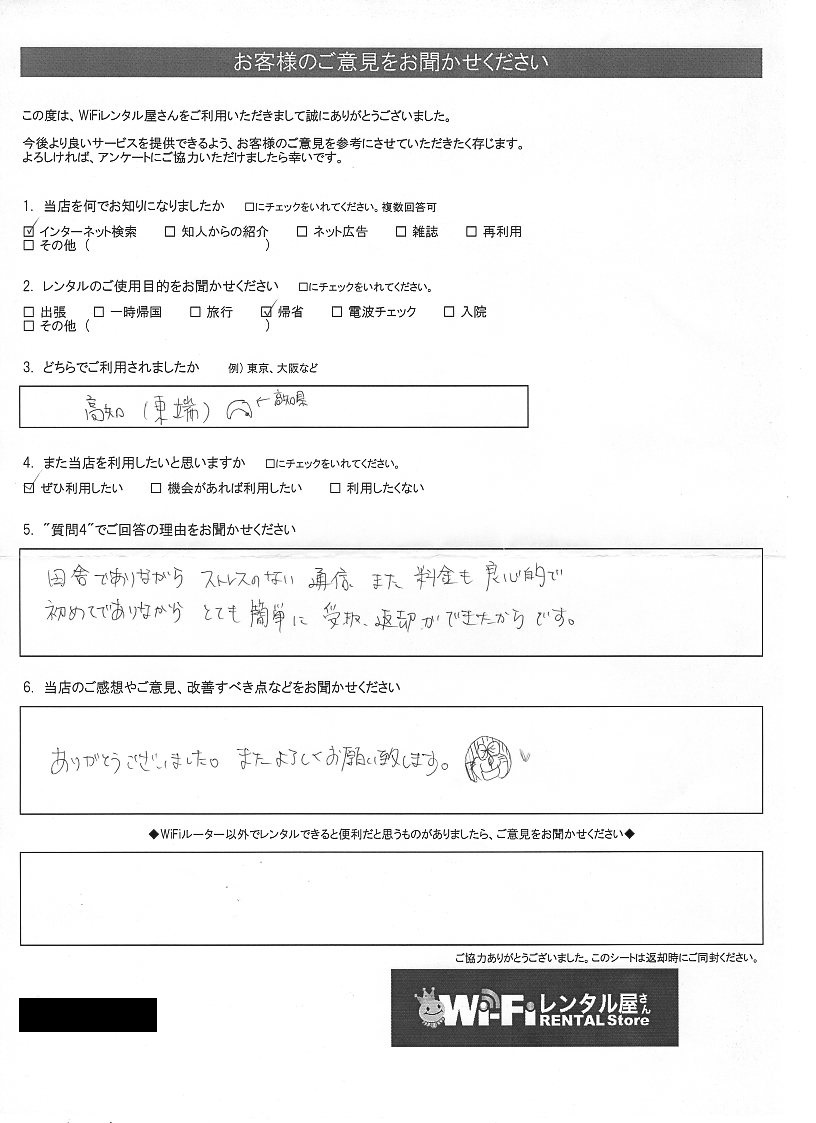 お客様のご意見をお聞かせください
この度は、WiFiレンタル屋さんをご利用いただきまして誠にありがとうございました。
今後より良いサービスを提供できるよう、お客様のご意見を参考にさせていただきたく存じます。
よろしければ、アンケートにご協力いただけましたら幸いです。
1. 当店を何でお知りになりましたか □にチェックをいれてください。複数回答可
☑ インターネット検索 □ 知人からの紹介 □ ネット広告 □ 雑誌 □ 再利用
□ その他 ( )
2. レンタルのご使用目的をお聞かせください □にチェックをいれてください。
□ 出張 □ 一時帰国 □ 旅行 ☑ 帰省 □ 電波チェック □ 入院
□ その他 ( )
3. どちらでご利用されましたか 例) 東京、大阪など
高知 (東端) ←高知県
4. また当店を利用したいと思いますか □にチェックをいれてください。
☑ ぜひ利用したい □ 機会があれば利用したい □ 利用したくない
5. "質問4"でご回答の理由をお聞かせください
田舎でありながら ストレスのない 通信、また 料金も 良心的で
初めてでありながら とても 簡単に 受取、返却ができたからです。
6. 当店のご感想やご意見、改善すべき点などをお聞かせください
ありがとうございました。またよろしくお願い致します。
◆WiFiルーター以外でレンタルできると便利だと思うものがありましたら、ご意見をお聞かせください◆
ご協力ありがとうございました。このシートは返却時にご同封ください。
Wi-Fiレンタル屋さん
RENTAL Store